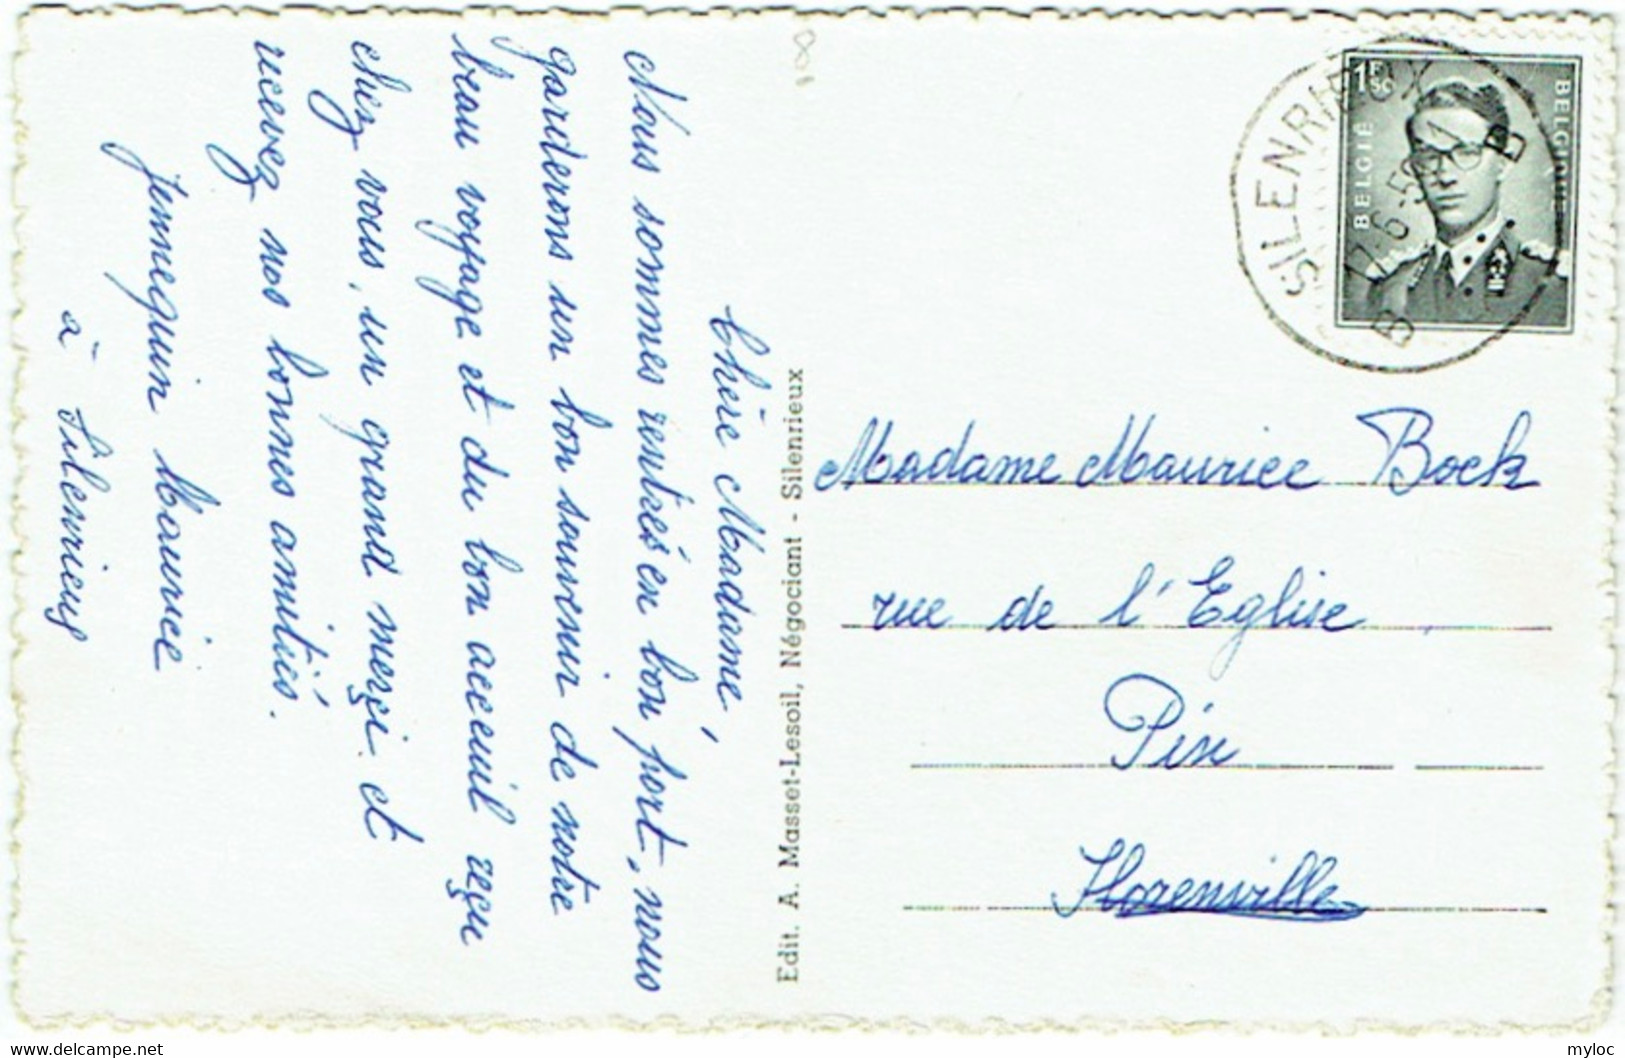 Chère Madame,
Nous sommes rentrés en bon port, nous
garderons un bon souvenir de notre
beau voyage et du bon acceuil reçu
chez vous, un grand merçi et
recevez nos bonnes amitiés.
Jennequin Maurice
à Silenrieux
Edit. A. Masset-Lesoil, Négociant - Silenrieux
1F50
BELGIE
BELGIQUE
SILENRIEUX
B B
Madame Maurice Bock
rue de l'Eglise
Pin
Florenville
myloc
delcampe.net